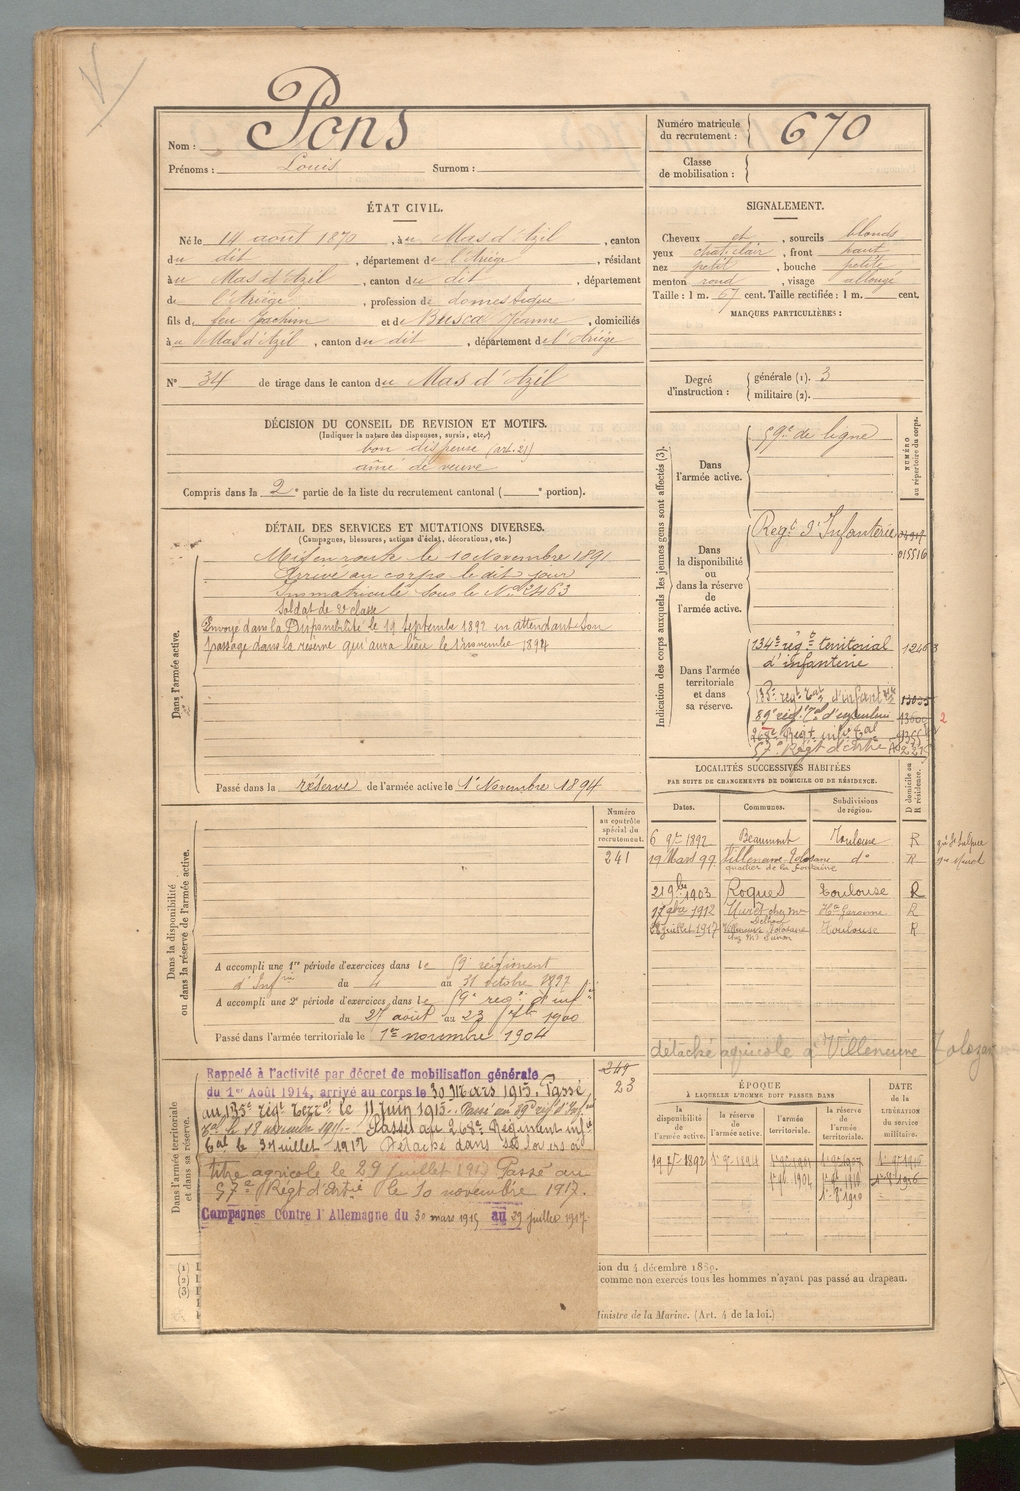 Nom : Pons
Prénoms : Louis Surnom :
Numéro matricule du recrutement : 670
Classe de mobilisation :
ÉTAT CIVIL.
Né le 14 août 1870, à u Mas d'Azil, canton
du dit, département de l'Ariège, résidant
à u Mas d'Azil, canton du dit, département
de l'Ariège, profession de domestique
fils de feu Joachim et de Busca Jeanne, domiciliés
à u Mas d'Azil, canton du dit, département de l'Ariège
N° 34 de tirage dans le canton du Mas d'Azil
SIGNALEMENT.
Cheveux et, sourcils blonds
yeux chat. clair, front haut
nez petit, bouche petite
menton rond, visage allongé
Taille : 1 m. 67 cent. Taille rectifiée : 1 m. cent.
MARQUES PARTICULIÈRES :
Degré d'instruction : générale (1). 3
militaire (2).
DÉCISION DU CONSEIL DE REVISION ET MOTIFS.
(Indiquer la nature des dispenses, sursis, etc.)
bon dispensé (art. 21)
aîné de veuve
Compris dans la 2e partie de la liste du recrutement cantonal ( e portion).
DÉTAIL DES SERVICES ET MUTATIONS DIVERSES.
(Campagnes, blessures, actions d'éclat, décorations, etc.)
Dans l'armée active.
Mis en route le 10 Novembre 1891
Arrivé au corps le dit jour
Immatriculé sous le No 2463
Soldat de 2e classe
Envoyé dans la Disponibilité le 19 Septembre 1892 en attendant son
passage dans la réserve qui aura lieu le 1er novembre 1894
Passé dans la réserve de l'armée active le 1er Novembre 1894
Indication des corps auxquels les jeunes gens sont affectés (3).
NUMÉRO au répertoire du corps.
Dans l'armée active.
59e de ligne
Dans la disponibilité ou dans la réserve de l'armée active.
Regt d'Infanterie
015516
Dans l'armée territoriale et dans sa réserve.
134e régt territorial
d'infanterie
135e régt Tal d'infanterie
89e régt Tal d'infanterie
268e Régt infie Tal
57e Régt d'Artie
2
LOCALITÉS SUCCESSIVES HABITÉES
PAR SUITE DE CHANGEMENTS DE DOMICILE OU DE RÉSIDENCE.
Dates. Communes. Subdivisions de région. D domicile ou R résidence.
6 9bre 1892 Beaumont Toulouse R
19 Mars 99 Villeneuve-Tolosane do R
quartier de la Fontaine
21 9bre 1903 Roques Toulouse R
17 1912 Muret chez Mr Hte Garonne R
28 juillet 1917 Villeneuve Tolosane Toulouse R
détaché agricole à Villeneuve Tolosane
Dans la disponibilité ou dans la réserve de l'armée active.
Numéro au contrôle spécial du recrutement.
241
A accompli une 1re période d'exercices dans le 59e régiment
d'Infrie du 4 au 31 octobre 1897
A accompli une 2e période d'exercices dans le 59e régt d'infie
du 27 août au 23 7bre 1900
Passé dans l'armée territoriale le 1er novembre 1904
Dans l'armée territoriale et dans sa réserve.
249
23
Rappelé à l'activité par décret de mobilisation générale
du 1er Août 1914, arrivé au corps le 30 Mars 1915. Passé
au 135e régt terral le 11 juin 1915. Passé au 89e régt d'Infie
Tal le 18 novembre 1915. Passé au 268e Régiment infie
Tal le 3 juillet 1917 Détaché dans ses foyers au
titre agricole le 29 juillet 1917 Passé au
57e Régt d'Artie le 10 novembre 1917.
Campagnes Contre l'Allemagne du 30 mars 1915 au 29 juillet 1917
ÉPOQUE
À LAQUELLE L'HOMME DOIT PASSER DANS
la disponibilité de l'armée active. la réserve de l'armée active. l'armée territoriale. la réserve de l'armée territoriale.
DATE DE LA LIBÉRATION du service militaire.
19 7bre 1892 1er 9bre 1894
(1)
(2)
(3)
ion du 4 décembre 1889.
comme non exercés tous les hommes n'ayant pas passé au drapeau.
Ministre de la Marine. (Art. 4 de la loi.)